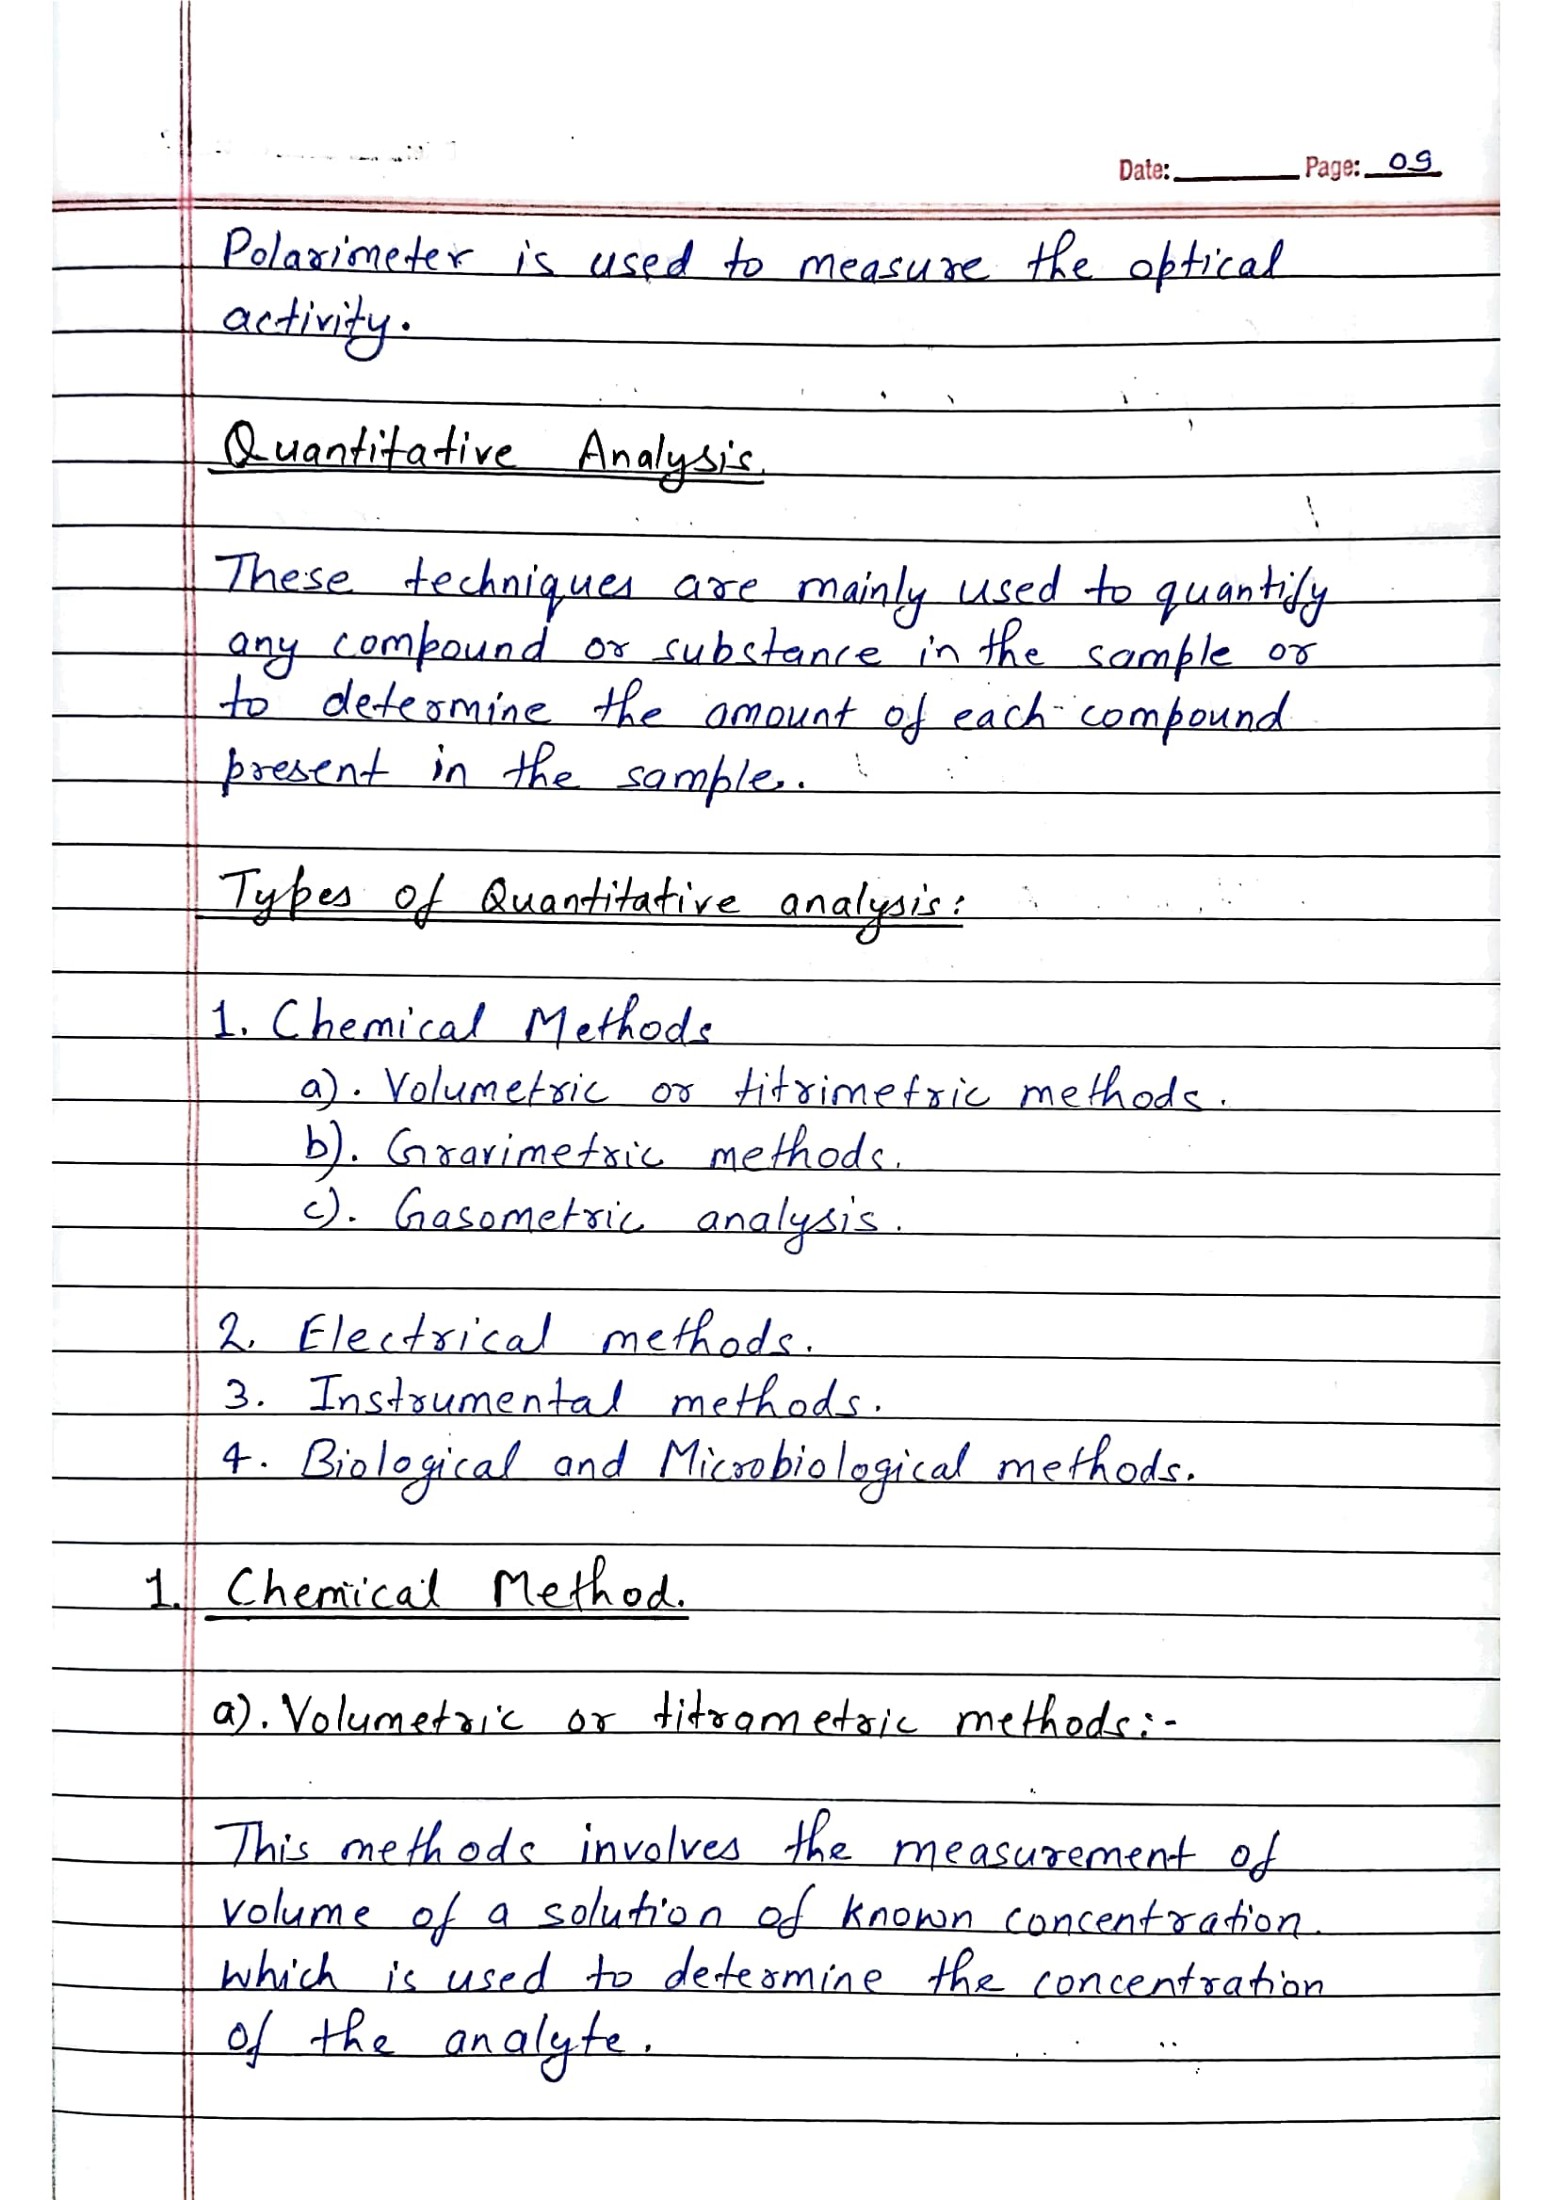 Date: Page: 09
Polarimeter is used to measure the optical
activity.
Quantitative Analysis.
These techniques are mainly used to quantify
any compound or substance in the sample or
to determine the amount of each compound
present in the sample.
Types of Quantitative analysis:
1. Chemical Methods
a). Volumetric or titrimetric methods.
b). Gravimetric methods.
c). Gasometric analysis.
2. Electrical methods.
3. Instrumental methods.
4. Biological and Microbiological methods.
1. Chemical Method.
a). Volumetric or titrametric methods:-
This methods involves the measurement of
volume of a solution of known concentration
which is used to determine the concentration
of the analyte.